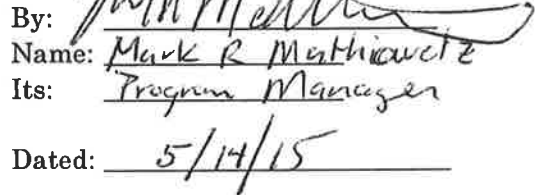 By:
Name: Mark R Mathiowetz
Its: Program Manager
Dated: 5/14/15